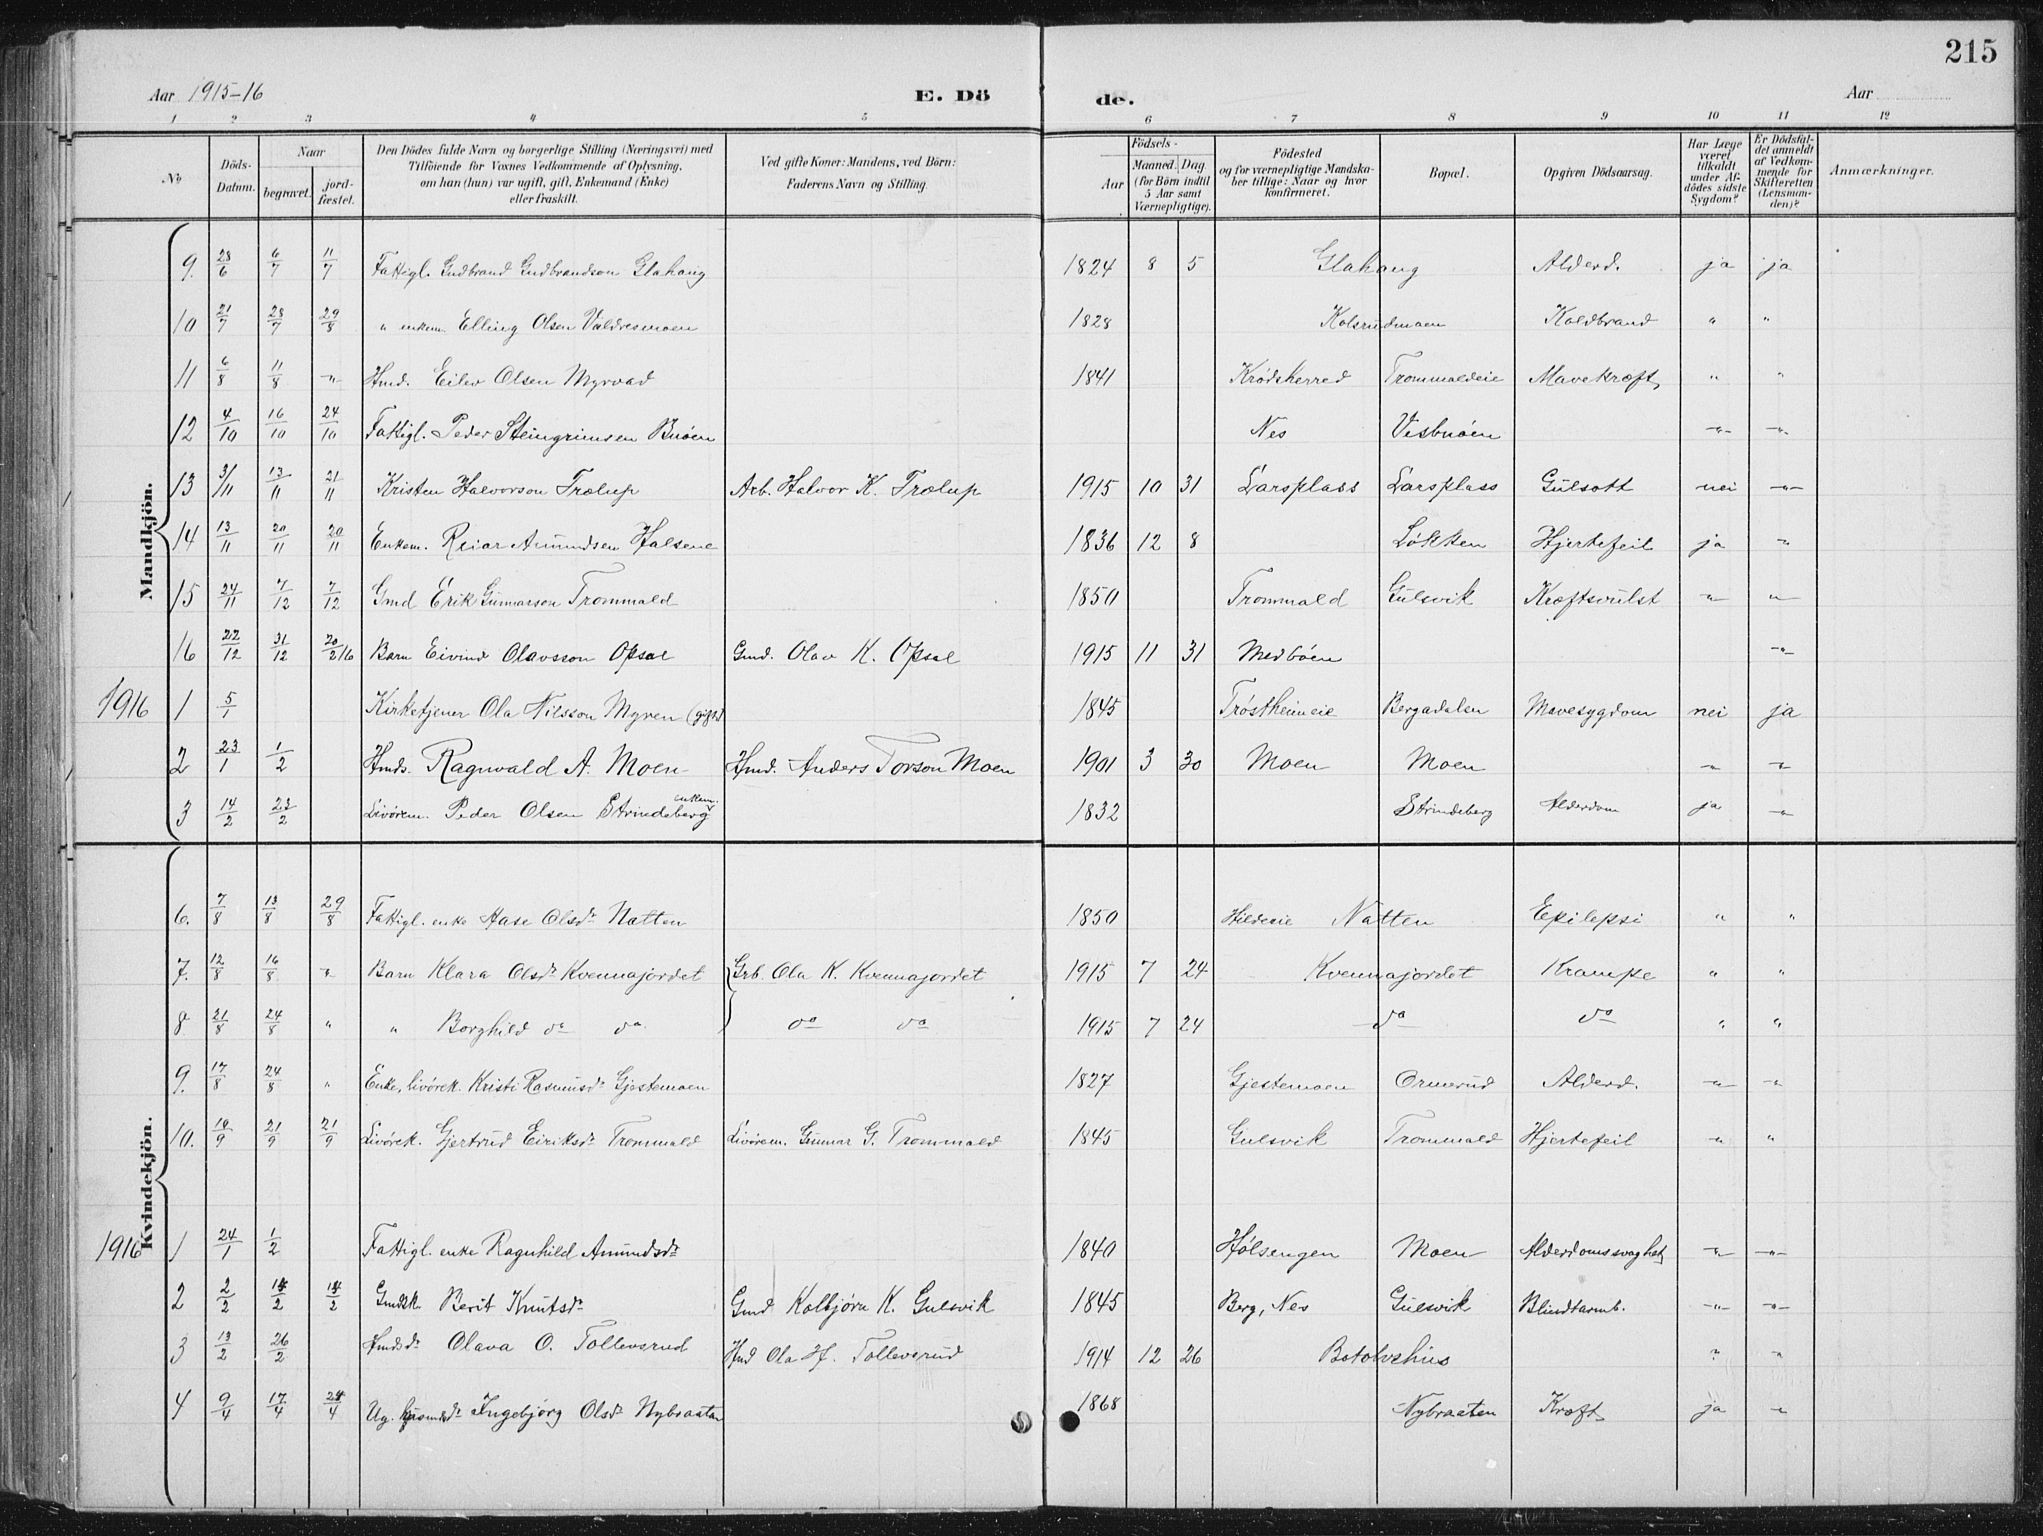 215
Aar 1915-16 E. Dö de. Aar
1 2 3 4 5 6 7 8 9 10 11 12
No Döds-Datum. Naar begravet. jord-fæstet. Den Dödes fulde Navn og borgerlige Stilling (Næringsvei) med Tilföiende for Voxnes Vedkommende af Oplysning, om han (hun) var ugift, gift, Enkemand (Enke) eller fraskilt. Ved gifte Koner: Mandens, ved Börn: Faderens Navn og Stilling. Aar Födsels- Maaned. Dag (for Börn indtil 5 Aar samt Værnepligtige). Födested og for værnepligtige Mandskaber tillige: Naar og hvor konfirmeret. Bopæl. Opgiven Dödsaarsag. Har Læge været tilkaldt under Afdödes sidste Sygdom? Er Dödsfaldet anmeldt af Vedkommende for Skifteretten (Lensmanden)? Anmærkninger.
Mandkjön.
9. 28/6 6/7 11/7 Fattigl. Gudbrand Gudbrandson Glahaug 1824 8 5 Glahaug Alderd. ja ja
10 21/7 28/7 29/8 " enkem. Elling Olsen Valdresmoen 1828 Kolsrudmoen Koldbrand " "
11 6/8 11/8 -"- Hmd. Eilev Olsen Myrvad 1841 Krødsherred Trommaldeie Mavekræft " "
12 4/10 16/10 24/10 Fattigl. Peder Steingrimsen Buøen Nes Vesbuøen -"- -"-
13 3/11 13/11 21/11 Kristen Halvorson Trælup Arb. Halvor K. Trælup 1915 10 31 Larsplass Larsplass Gulsott nei -"-
14 13/11 20/11 20/11 Enkem. Reiar Amundsen Halsene 1836 12 8 Løkken Hjertefeil ja "
15 24/11 7/12 7/12 Gmd Erik Gunnarson Trommald 1850 Trommald Gulsvik Kræftsvulst -"- -"-
16 22/12 31/12 20/2 16 Barn Eivind Olavsson Opsal Gmd. Olav K. Opsal 1915 11 31 Medbøen -"-
1916 1 5/1 Kirketjener Ola Nilsson Myren (gift) 1845 Trøstheimeie Bergadalen Mavesygdom nei ja
2 23/1 1/2 Hmds. Ragnvald A. Moen Hmd. Anders Torson Moen 1901 3 30 Moen Moen -"- -"-
3 14/2 23/2 Livørem. Peder Olsen Strindeberg enkem. 1832 Strindeberg Alderdom ja -"-
Kvindekjön.
6. 7/8 13/8 29/8 Fattigl. enke Aase Olsdr Natten 1850 Hildeeie Natten Epilepsi " "
7. 12/8 16/8 " Barn Klara Olsdr Kvennajordet Grb. Ola K. Kvennajordet 1915 7 24 Kvennajordet Krampe " "
8 21/8 24/8 " " Borghild do do do do 1915 7 24 do do " "
9. 17/8 24/8 " Enke, livørek. Kristi Rasmusdr Gjestemoen 1827 Gjestemoen Ormerud Alderd. -"- -"-
10. 10/9 21/9 21/9 Livørek. Gjertrud Eiriksdr Trommald Livørem. Gunnar G. Trommald 1845 Gulsvik Trommald Hjertefeil " "
1916 1 24/1 1/2 Fattigl. enke Ragnhild Amundsdr 1840 Hølsengen Moen Alderdomssvaghet -"- -"-
2 2/2 14/2 14/2 Gmdsk. Berit Knutsdr Gmd Kolbjørn K. Gulsvik 1845 Berg, Nes Gulsvik Blindtarmb. -"- -"-
3 13/2 26/2 Hmdsdr Olava O. Tollevsrud Hmd Ola H. Tollevsrud 1914 12 26 Botolvshus " "
4 9/4 17/4 24/4 Ug. Ingebjørg Olsdr Nybraatan 1868 Nybraaten Kræft ja "